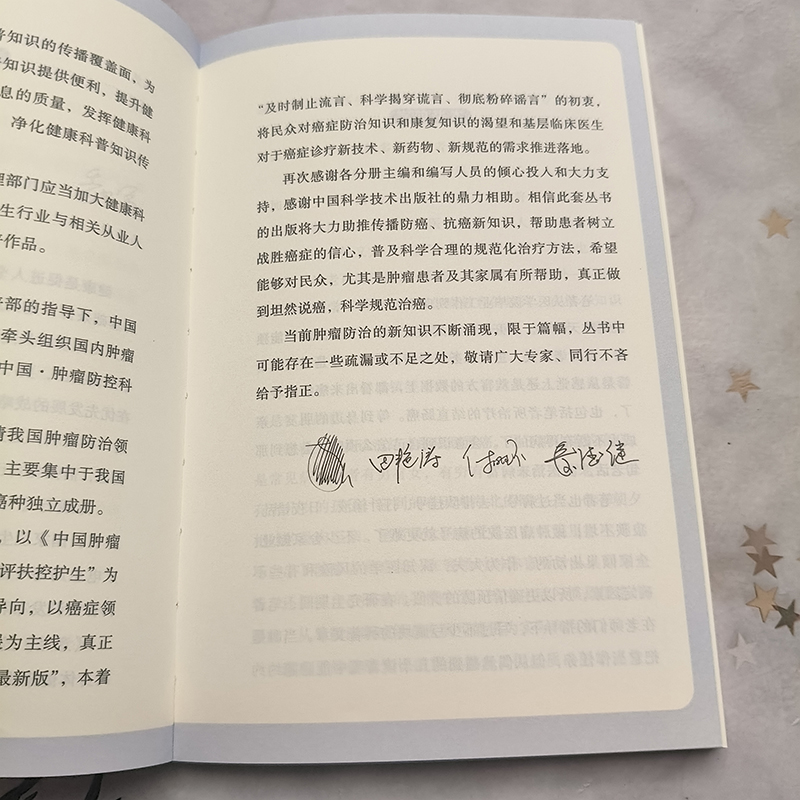 普知识的传播覆盖面，为
知识提供便利，提升健
息的质量，发挥健康科
净化健康科普知识传
理部门应当加大健康科
生行业与相关从业人
作品。
部的指导下，中国
牵头组织国内肿瘤
中国·肿瘤防控科
请我国肿瘤防治领
主要集中于我国
癌种独立成册。
，以《中国肿瘤
评扶控护生”为
导向，以癌症领
为主线，真正
最新版”，本着
“及时制止流言、科学揭穿谎言、彻底粉碎谣言”的初衷，
将民众对癌症防治知识和康复知识的渴望和基层临床医生
对于癌症诊疗新技术、新药物、新规范的需求推进落地。
再次感谢各分册主编和编写人员的倾心投入和大力支
持，感谢中国科学技术出版社的鼎力相助。相信此套丛书
的出版将大力助推传播防癌、抗癌新知识，帮助患者树立
战胜癌症的信心，普及科学合理的规范化治疗方法，希望
能够对民众，尤其是肿瘤患者及其家属有所帮助，真正做
到坦然说癌，科学规范治癌。
当前肿瘤防治的新知识不断涌现，限于篇幅，丛书中
可能存在一些疏漏或不足之处，敬请广大专家、同行不吝
给予指正。
田艳涛